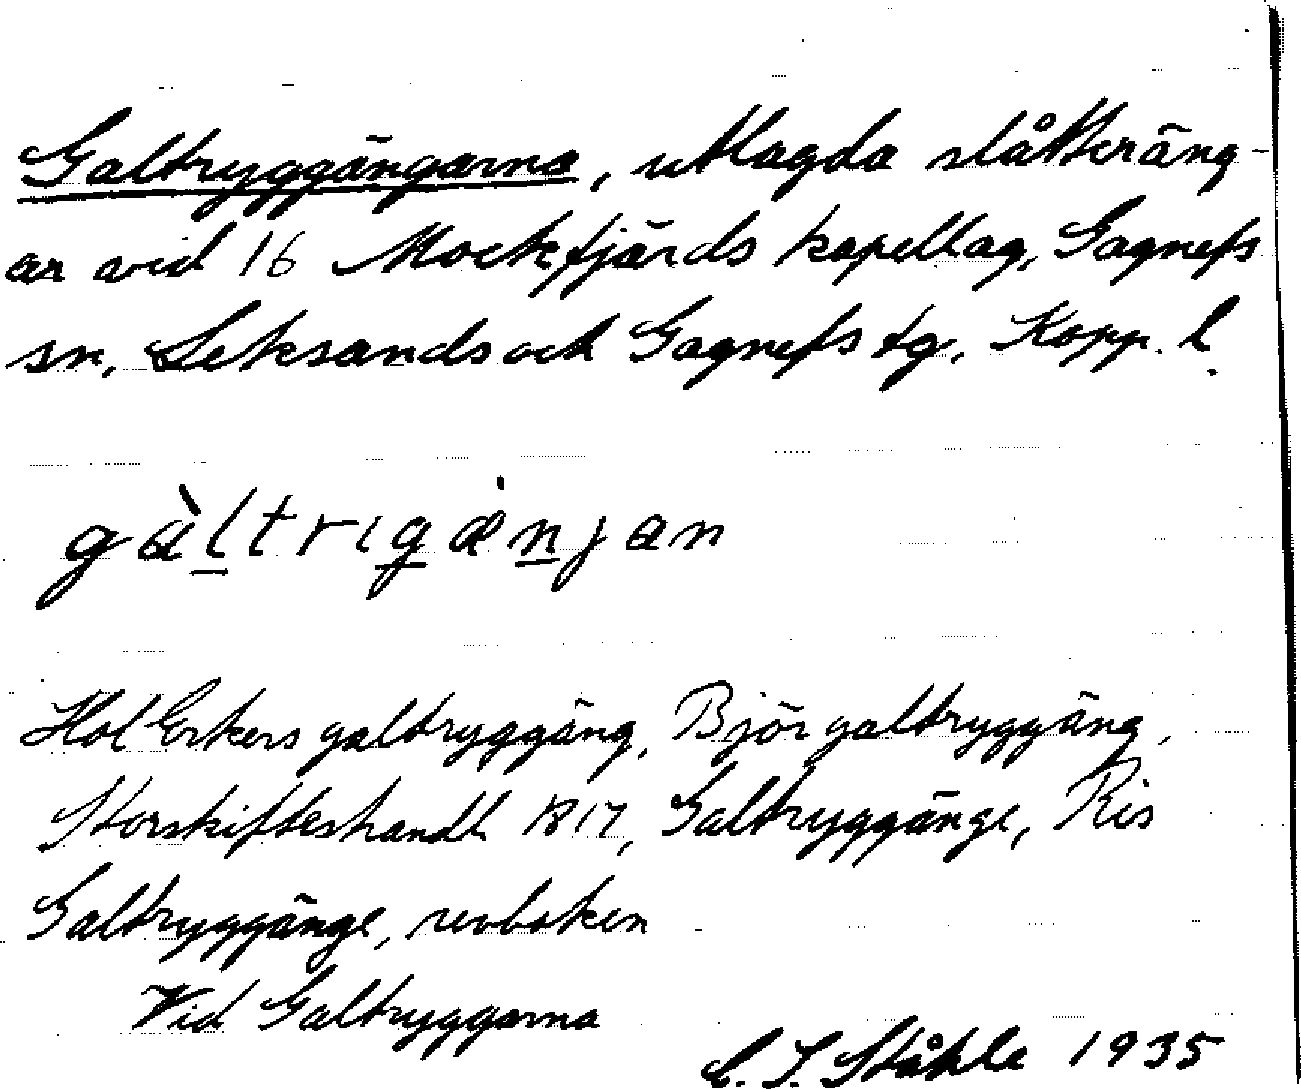 Galtryggängarna, utlagda slåtteräng-
ar vid 16 Mockfjärds kapellag, Gagnefs
sn, Leksands och Gagnefs tg, Kopp. l.
gàltrigænjan
Hol Erkers galtryggäng, Björ galtryggäng,
Storskifteshandl 1817, Galtryggänge, Ris
Galtryggänge, revboken
Vid Galtryggarna
C. I. Ståhle 1935